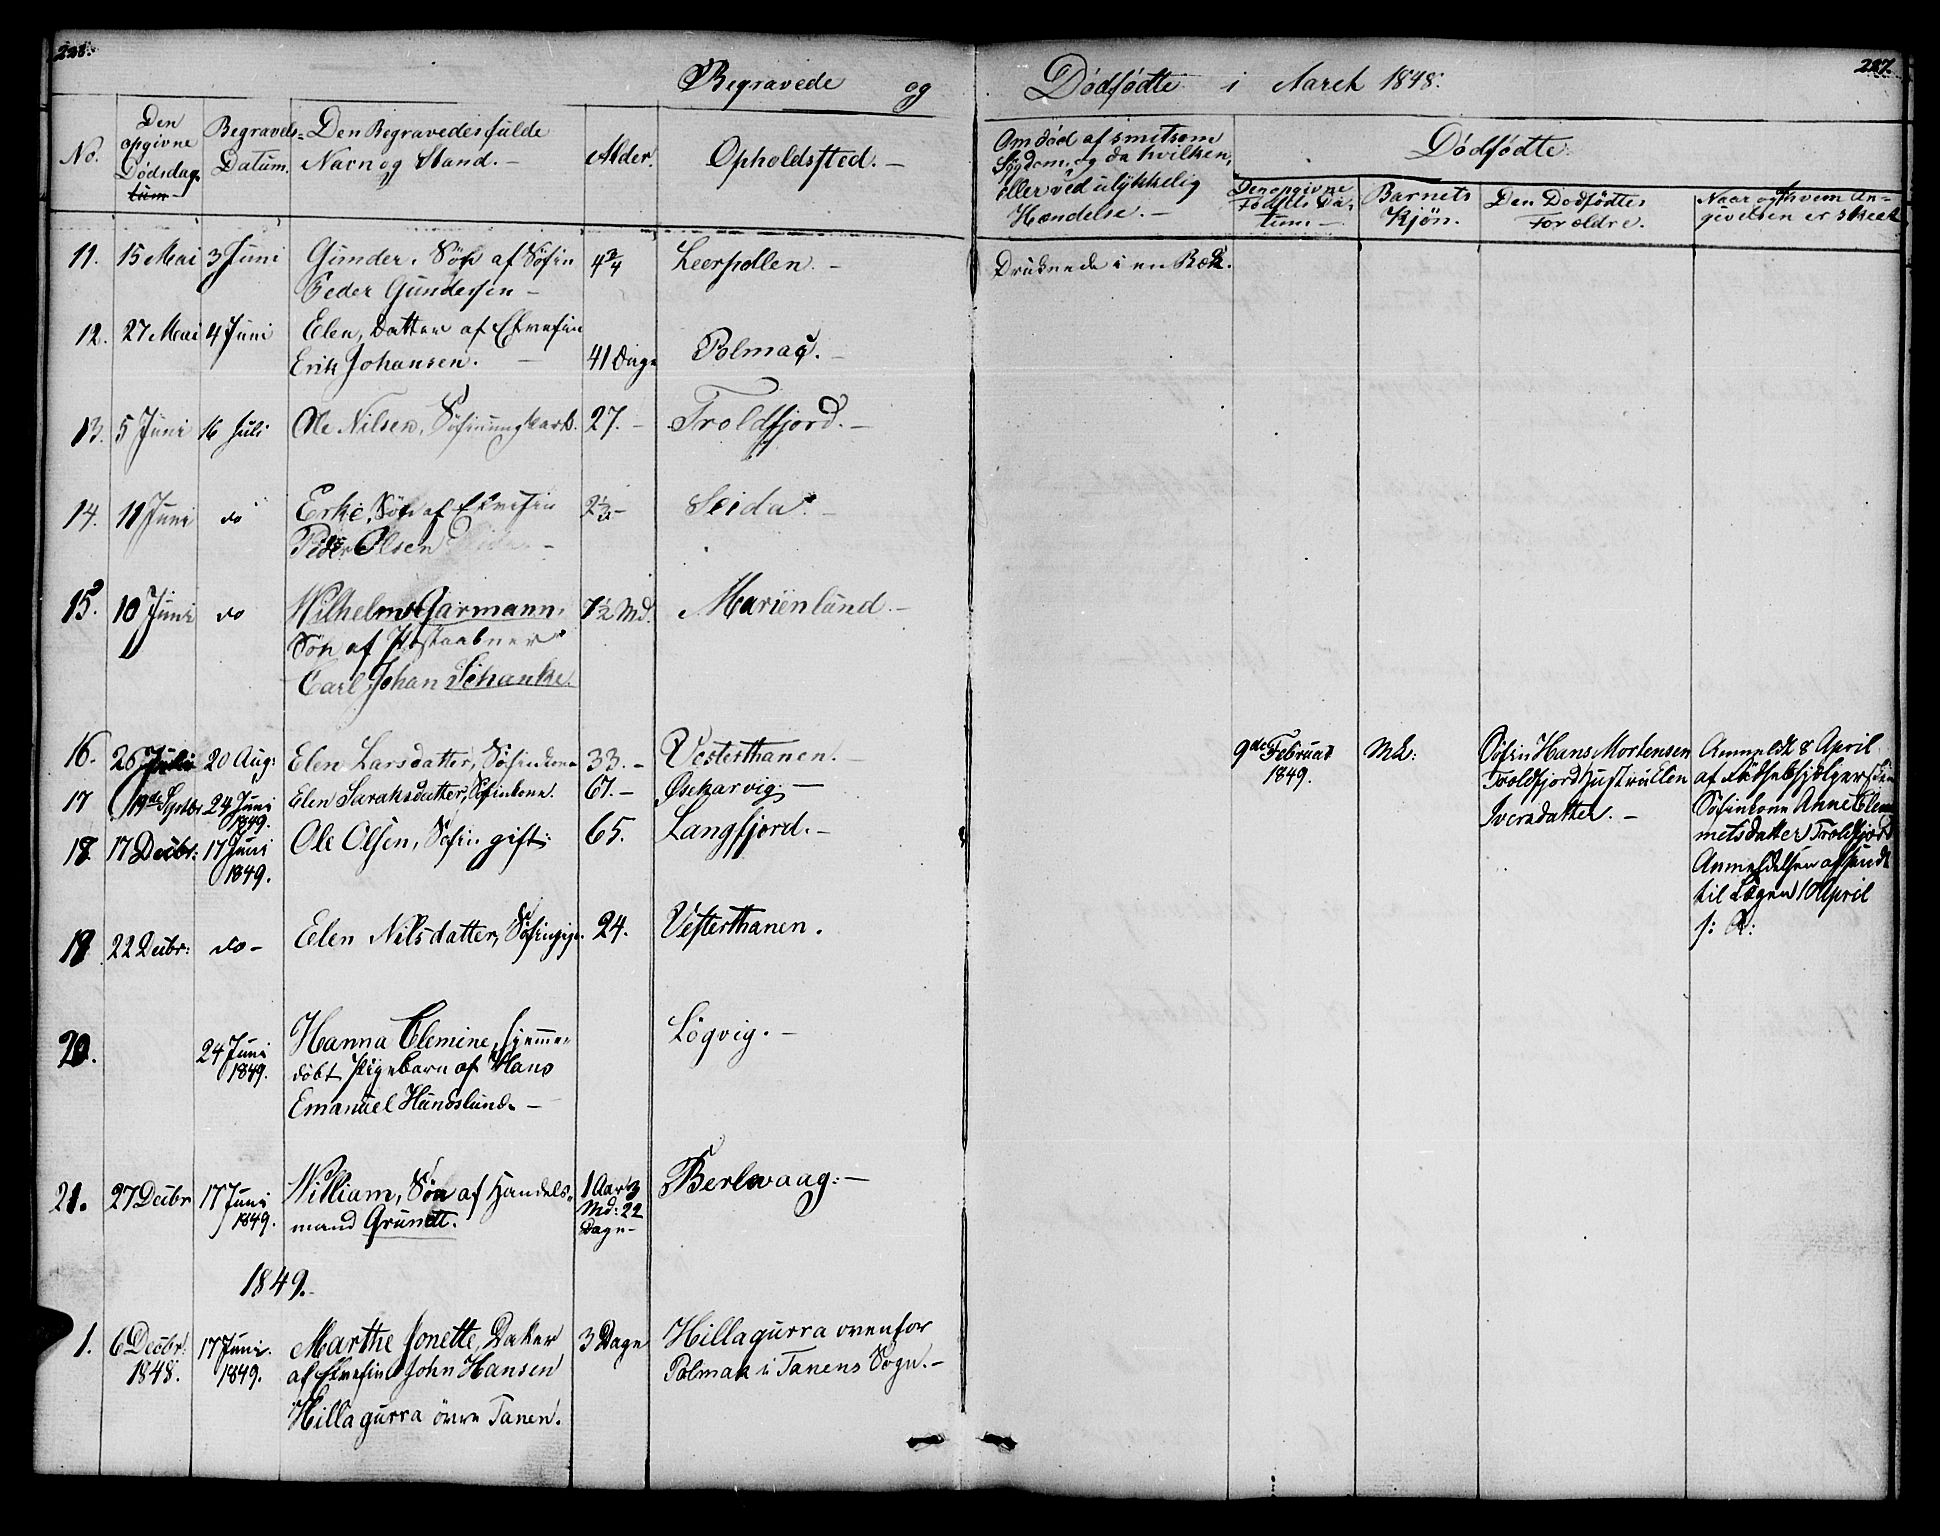 228.
Begravede og Dødfødte i Aaret 1848.
287.
No.
Den opgivne Dødsdag
tum
Begravels-
Datum.
Den Begravedes fulde
Navn og Stand.
Alder.
Opholdsted.
Om død af smitsom
Sygdom, og da hvilken,
eller ved ulykkelig
Hændelse.
Dødfødte
Den opgivne
Fødsels Da-
tum
Barnets
Kjøn.
Den Dødfødtes
Forældre.
Naar og hvem An-
givelsen er skeet
11. 15 Mai 3 Juni Gunder, Søn af Søfin 4 3/4 Leerpollen. Druknede i en Bæk.
Peder Gundersen
12. 27 Mai 4 Juni Elen, Datter af Elvefin
Erik Johansen. 41 Dage Polmaq.
13. 5 Juni 16 Juli Ole Nilsen, Søfin ungkarl. 27. Troldfjord.
14. 11 Juni do Erke, Søn af Elvefin Seida.
Peder Olsen
15. 10 Juni do Wilhelm Garmann, 7½ Md. Marienlund.
Søn af Postaabner
Carl Johan Schanke.
16. 26 Juli 20 Aug: Elen Larsdatter, Søfinkone 33. Vesterthanen.
17 19de Septbr 24 Juni 1849. Elen Saraksdatter, Søfinkone. 67. Øskarvig.
18. 17 Decbr: 17 Juni 1849. Ole Olsen, Søfin gift: 65. Langfjord.
9de Februar
1849.
Mk:
Søfin Hans Mortensen
Troldfjord Hustru Elen
Iversdatter.
Anmeldt 8 April
af Fødselshjælpersken
Søfinkone Anne Clem
metsdatter Troldfjord
Anmeldelsen afsendt
til Lægen 10 April
s: A:
19 22 Decbr: do Elen Nilsdatter, Søfinpige. 24. Vesterthanen.
20. 24 Juni 1849. Hanna Clemine, hjemme- Løgvig.
døbt Pigebarn af Hans
Emanuel Hundslund.
21. 27 Decbr 17 Juni 1849. William, Søn af Handels- 1 Aar 3 Berlevaag.
mand Grundt. Md: 22
Dage
1849.
1. 6 Decbr: 17 Juni Marthe Jonette, Datter 3 Dage Hillagurra ovenfor
1848. 1849. af Elvefin John Hansen Polmak i Tanens Sogn.
Hillagurra øvre Tanen.